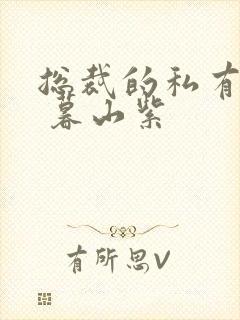 总裁的私有
暮山紫
有所思V